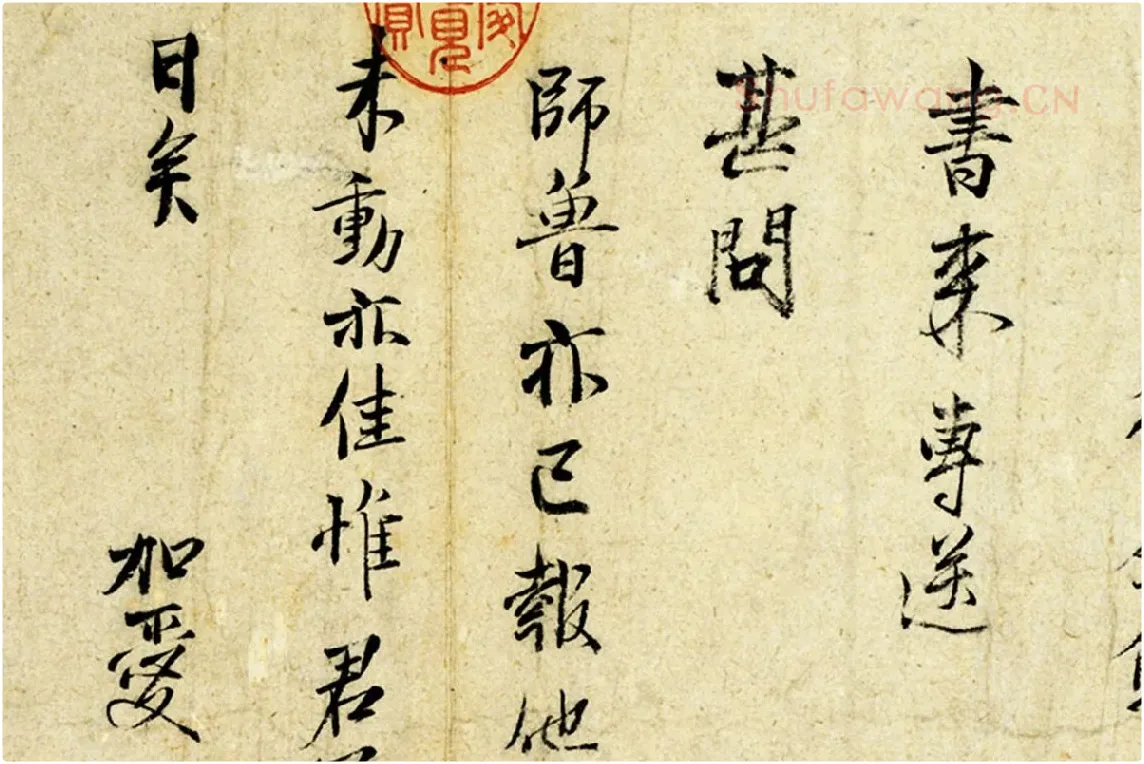 書来專送
甚問
師魯亦已報他
未動亦佳惟君
日矣 加愛
ShufaWang.CN